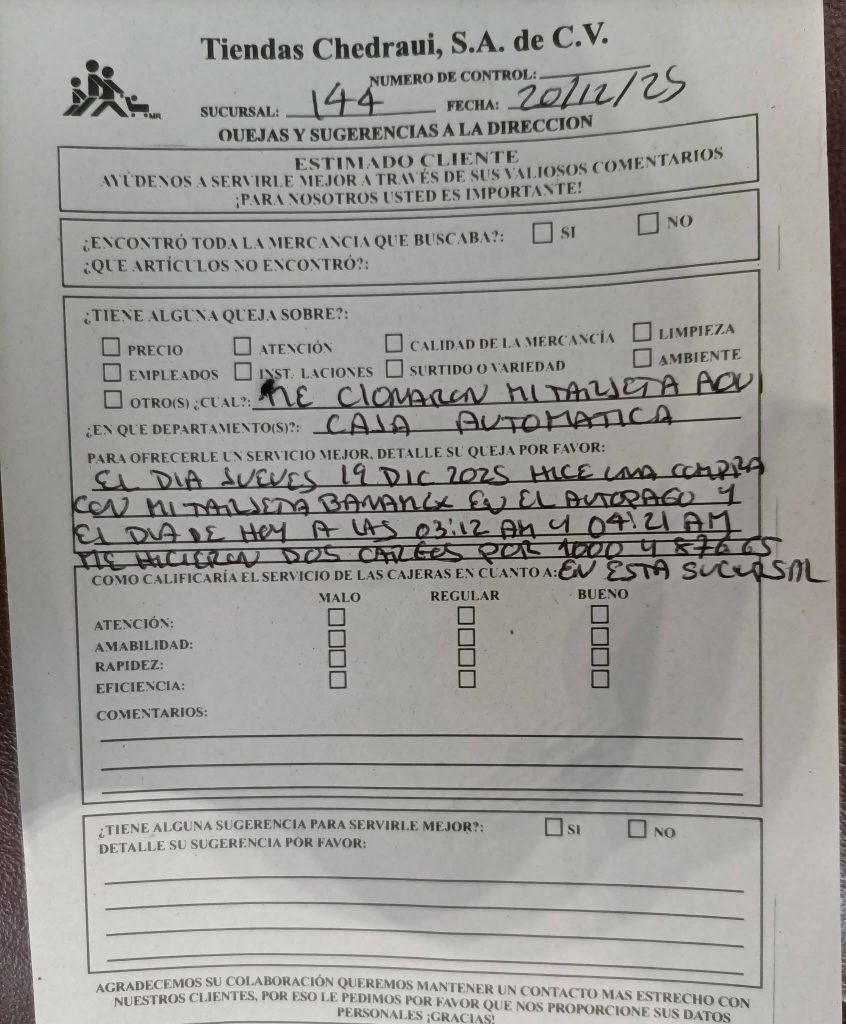 Tiendas Chedraui, S.A. de C.V.
NUMERO DE CONTROL:
SUCURSAL: 144 FECHA: 20/12/25
MR
QUEJAS Y SUGERENCIAS A LA DIRECCION
ESTIMADO CLIENTE
AYÚDENOS A SERVIRLE MEJOR A TRAVÉS DE SUS VALIOSOS COMENTARIOS
¡PARA NOSOTROS USTED ES IMPORTANTE!
¿ENCONTRÓ TODA LA MERCANCIA QUE BUSCABA?: SI NO
¿QUE ARTÍCULOS NO ENCONTRÓ?:
¿TIENE ALGUNA QUEJA SOBRE?:
PRECIO ATENCIÓN CALIDAD DE LA MERCANCÍA LIMPIEZA
EMPLEADOS INST. LACIONES SURTIDO O VARIEDAD AMBIENTE
OTRO(S) ¿CUAL?: ME CLONARON MI TARJETA AQUI
¿EN QUE DEPARTAMENTO(S)?: CAJA AUTOMATICA
PARA OFRECERLE UN SERVICIO MEJOR, DETALLE SU QUEJA POR FAVOR:
EL DIA JUEVES 19 DIC 2025 HICE UNA COMPRA
CON MI TARJETA BANAMEX EN EL AUTOPAGO Y
EL DIA DE HOY A LAS 03:12 AM Y 04:21 AM
ME HICIERON DOS CARGOS POR 1000 Y 876 65
COMO CALIFICARÍA EL SERVICIO DE LAS CAJERAS EN CUANTO A: EN ESTA SUCURSAL
MALO REGULAR BUENO
ATENCIÓN:
AMABILIDAD:
RAPIDEZ:
EFICIENCIA:
COMENTARIOS:
¿TIENE ALGUNA SUGERENCIA PARA SERVIRLE MEJOR?: SI NO
DETALLE SU SUGERENCIA POR FAVOR:
AGRADECEMOS SU COLABORACIÓN QUEREMOS MANTENER UN CONTACTO MAS ESTRECHO CON
NUESTROS CLIENTES, POR ESO LE PEDIMOS POR FAVOR QUE NOS PROPORCIONE SUS DATOS
PERSONALES ¡GRACIAS!